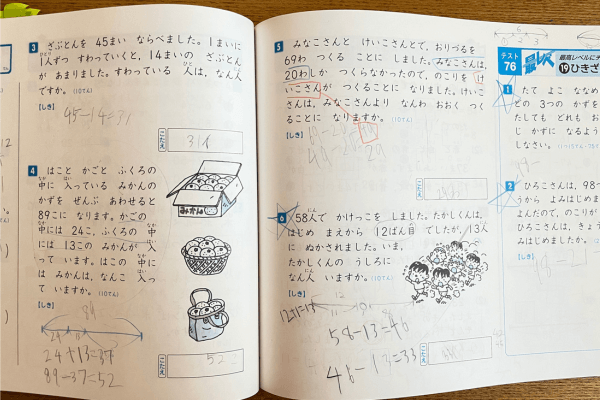 3 ざぶとんを 45まい ならべました。1まいに
1人ずつ すわっていくと、14まいの ざぶとん
が あまりました。すわっている 人は、なん人
ですか。(10てん)
[しき]
45-14=31
こたえ
31人
4 はこと かごと ふくろの
中に 入っている みかんの
かずを ぜんぶ あわせると
89こに なります。かごの
中には 24こ、ふくろの 中
には 13この みかんが 入
って います。はこの 中に
は みかんは、なんこ 入っ
て いますか。(10てん)
[しき]
みかん
89
24
24+13=37
89-37=52
こたえ
52
5 みなこさんと けいこさんとで、おりづるを
69わ つくる ことに しました。みなこさんは、
20わしか つくらなかったので、のこりを け
いこさんが つくることに なりました。けいこ
さんは、みなこさんより なんわ おおく つく
ることに なりますか。(10てん)
[しき]
29
こたえ
6 58人で かけっこを しました。たかしくんは、
はじめ まえから 12ばん目 でしたが、13人
に ぬかされました。いま、
たかしくんの うしろに
なん人 いますか。(10てん)
[しき]
58-13=46
46-13=33
こたえ
テスト
76
最レベ
最高レベルに
19 ひきざ
1 たて よこ ななめ
どの 3つの かずを
たしても どれも お
じ かずに なるよう
しなさい。
2 ひろこさんは、98ペ
うから よみはじめま
よんだので、のこりが
ひろこさんは、きょ
みはじめましたか。
[しき]